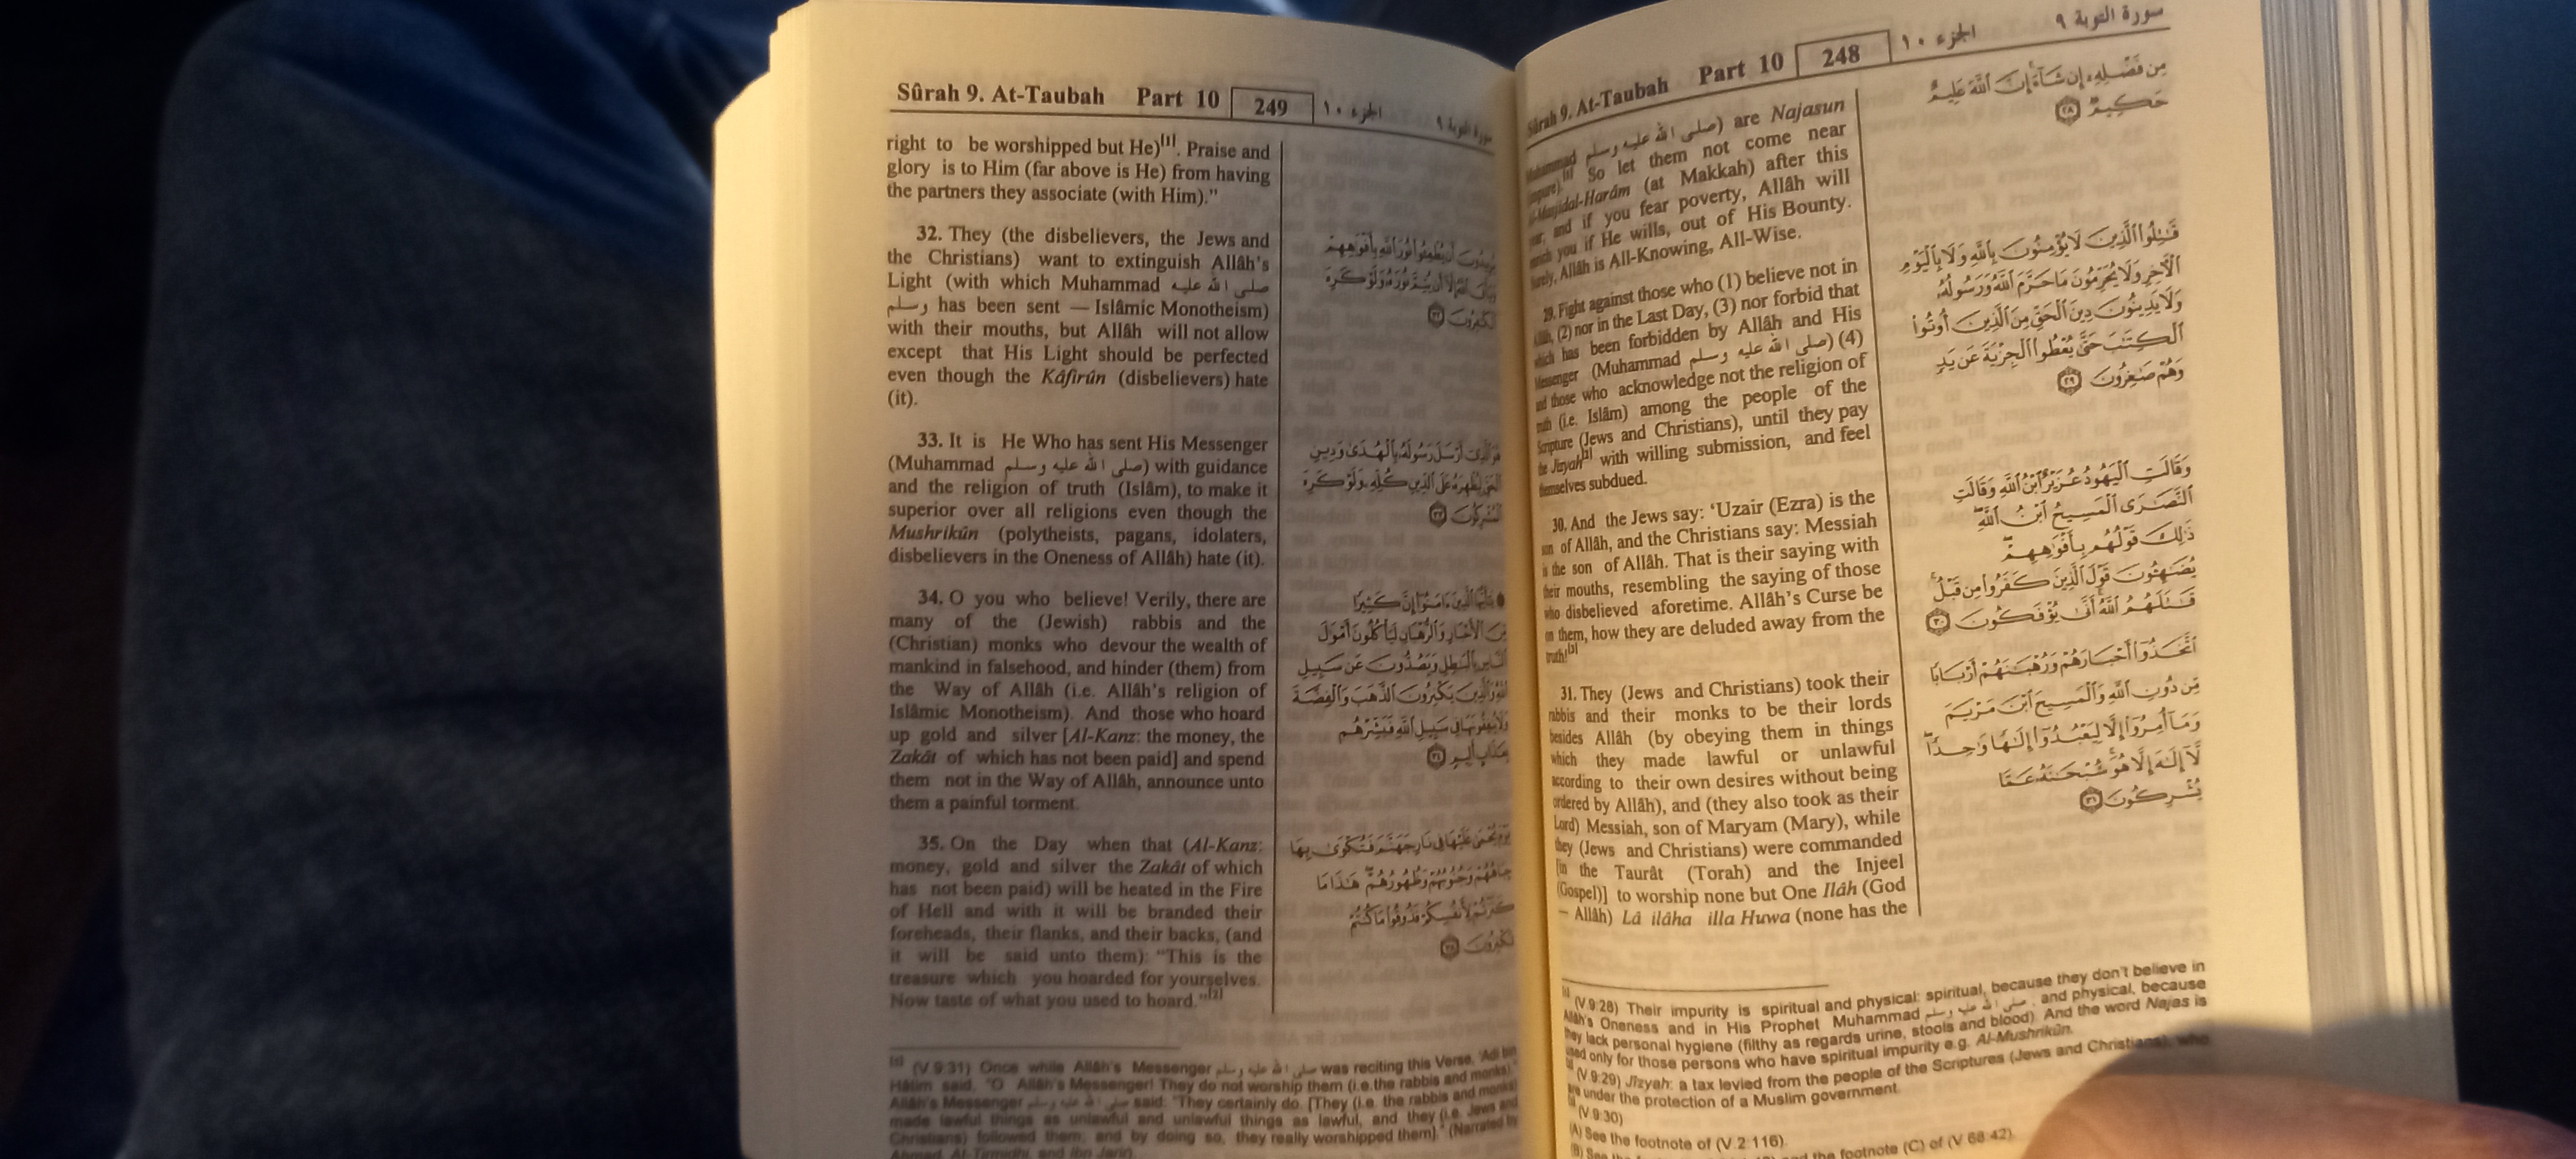 سورة التوبة ٩
الجزء ١٠
248
Part 10
Sûrah 9. At-Taubah
Muhammad صلى الله عليه وسلم) are Najasun
(impure).[1] So let them not come near
Al-Masjidal-Harâm (at Makkah) after this
year, and if you fear poverty, Allâh will
enrich you if He wills, out of His Bounty.
Surely, Allâh is All-Knowing, All-Wise.
29. Fight against those who (1) believe not in
Allâh, (2) nor in the Last Day, (3) nor forbid that
which has been forbidden by Allâh and His
Messenger (Muhammad صلى الله عليه وسلم) (4)
and those who acknowledge not the religion of
truth (i.e. Islâm) among the people of the
Scripture (Jews and Christians), until they pay
the Jizyah[2] with willing submission, and feel
themselves subdued.
30. And the Jews say: ‘Uzair (Ezra) is the
son of Allâh, and the Christians say: Messiah
is the son of Allâh. That is their saying with
their mouths, resembling the saying of those
who disbelieved aforetime. Allâh's Curse be
on them, how they are deluded away from the
truth![3]
31. They (Jews and Christians) took their
rabbis and their monks to be their lords
besides Allâh (by obeying them in things
which they made lawful or unlawful
according to their own desires without being
ordered by Allâh), and (they also took as their
Lord) Messiah, son of Maryam (Mary), while
they (Jews and Christians) were commanded
[in the Taurât (Torah) and the Injeel
(Gospel)] to worship none but One Ilâh (God
— Allâh) Lâ ilâha illa Huwa (none has the
مِن فَضْلِهِۦٓ إِن شَآءَ إِنَّ ٱللَّهَ عَلِيمٌ
حَكِيمٌ ٢٨
قَٰتِلُوا۟ ٱلَّذِينَ لَا يُؤْمِنُونَ بِٱللَّهِ وَلَا بِٱلْيَوْمِ
ٱلْءَاخِرِ وَلَا يُحَرِّمُونَ مَا حَرَّمَ ٱللَّهُ وَرَسُولُهُۥ
وَلَا يَدِينُونَ دِينَ ٱلْحَقِّ مِنَ ٱلَّذِينَ أُوتُوا۟
ٱلْكِتَٰبَ حَتَّىٰ يُعْطُوا۟ ٱلْجِزْيَةَ عَن يَدٍ
وَهُمْ صَٰغِرُونَ ٢٩
وَقَالَتِ ٱلْيَهُودُ عُزَيْرٌ ٱبْنُ ٱللَّهِ وَقَالَتِ
ٱلنَّصَٰرَى ٱلْمَسِيحُ ٱبْنُ ٱللَّهِ
ذَٰلِكَ قَوْلُهُم بِأَفْوَٰهِهِمْ
يُضَٰهِـُٔونَ قَوْلَ ٱلَّذِينَ كَفَرُوا۟ مِن قَبْلُ
قَٰتَلَهُمُ ٱللَّهُ أَنَّىٰ يُؤْفَكُونَ ٣٠
ٱتَّخَذُوٓا۟ أَحْبَارَهُمْ وَرُهْبَٰنَهُمْ أَرْبَابًا
مِّن دُونِ ٱللَّهِ وَٱلْمَسِيحَ ٱبْنَ مَرْيَمَ
وَمَآ أُمِرُوٓا۟ إِلَّا لِيَعْبُدُوٓا۟ إِلَٰهًا وَٰحِدًا
لَّآ إِلَٰهَ إِلَّا هُوَ سُبْحَٰنَهُۥ عَمَّا
يُشْرِكُونَ ٣١
[1] (V.9:28) Their impurity is spiritual and physical: spiritual, because they don't believe in
Allâh's Oneness and in His Prophet Muhammad صلى الله عليه وسلم, and physical, because
they lack personal hygiene (filthy as regards urine, stools and blood). And the word Najas is
used only for those persons who have spiritual impurity e.g. Al-Mushrikûn.
(V.9:29) Jizyah: a tax levied from the people of the Scriptures (Jews and Christians), who
are under the protection of a Muslim government.
(V.9:30)
(A) See the footnote of (V.2:116).
(B) See the footnote (C) of (V.68:42).
Sûrah 9. At-Taubah
Part 10
249
الجزء ١٠
سورة التوبة ٩
right to be worshipped but He)[1]. Praise and
glory is to Him (far above is He) from having
the partners they associate (with Him)."
32. They (the disbelievers, the Jews and
the Christians) want to extinguish Allâh's
Light (with which Muhammad صلى الله عليه
وسلم has been sent — Islâmic Monotheism)
with their mouths, but Allâh will not allow
except that His Light should be perfected
even though the Kâfirûn (disbelievers) hate
(it).
33. It is He Who has sent His Messenger
(Muhammad صلى الله عليه وسلم) with guidance
and the religion of truth (Islâm), to make it
superior over all religions even though the
Mushrikûn (polytheists, pagans, idolaters,
disbelievers in the Oneness of Allâh) hate (it).
34. O you who believe! Verily, there are
many of the (Jewish) rabbis and the
(Christian) monks who devour the wealth of
mankind in falsehood, and hinder (them) from
the Way of Allâh (i.e. Allâh's religion of
Islâmic Monotheism). And those who hoard
up gold and silver [Al-Kanz: the money, the
Zakât of which has not been paid] and spend
them not in the Way of Allâh, announce unto
them a painful torment.
35. On the Day when that (Al-Kanz:
money, gold and silver the Zakât of which
has not been paid) will be heated in the Fire
of Hell and with it will be branded their
foreheads, their flanks, and their backs, (and
it will be said unto them): "This is the
treasure which you hoarded for yourselves.
Now taste of what you used to hoard."[2]
يُرِيدُونَ أَن يُطْفِـُٔوا۟ نُورَ ٱللَّهِ بِأَفْوَٰهِهِمْ
وَيَأْبَى ٱللَّهُ إِلَّآ أَن يُتِمَّ نُورَهُۥ وَلَوْ كَرِهَ
ٱلْكَٰفِرُونَ ٣٢
هُوَ ٱلَّذِىٓ أَرْسَلَ رَسُولَهُۥ بِٱلْهُدَىٰ وَدِينِ
ٱلْحَقِّ لِيُظْهِرَهُۥ عَلَى ٱلدِّينِ كُلِّهِۦ وَلَوْ كَرِهَ
ٱلْمُشْرِكُونَ ٣٣
يَٰٓأَيُّهَا ٱلَّذِينَ ءَامَنُوٓا۟ إِنَّ كَثِيرًا
مِّنَ ٱلْأَحْبَارِ وَٱلرُّهْبَانِ لَيَأْكُلُونَ أَمْوَٰلَ
ٱلنَّاسِ بِٱلْبَٰطِلِ وَيَصُدُّونَ عَن سَبِيلِ
ٱللَّهِ وَٱلَّذِينَ يَكْنِزُونَ ٱلذَّهَبَ وَٱلْفِضَّةَ
وَلَا يُنفِقُونَهَا فِى سَبِيلِ ٱللَّهِ فَبَشِّرْهُم
بِعَذَابٍ أَلِيمٍ ٣٤
يَوْمَ يُحْمَىٰ عَلَيْهَا فِى نَارِ جَهَنَّمَ فَتُكْوَىٰ بِهَا
جِبَاهُهُمْ وَجُنُوبُهُمْ وَظُهُورُهُمْ هَٰذَا مَا
كَنَزْتُمْ لِأَنفُسِكُمْ فَذُوقُوا۟ مَا كُنتُمْ
تَكْنِزُونَ ٣٥
[1] (V.9:31) Once while Allâh's Messenger صلى الله عليه وسلم was reciting this Verse, ‘Adi bin
Hâtim said, "O Allâh's Messenger! They do not worship them (i.e.the rabbis and monks)."
Allâh's Messenger صلى الله عليه وسلم said: "They certainly do. [They (i.e. the rabbis and monks)
made lawful things as unlawful and unlawful things as lawful, and they (i.e. Jews and
Christians) followed them; and by doing so, they really worshipped them]." (Narrated by
Ahmad, At-Tirmidhi, and Ibn Jarir).